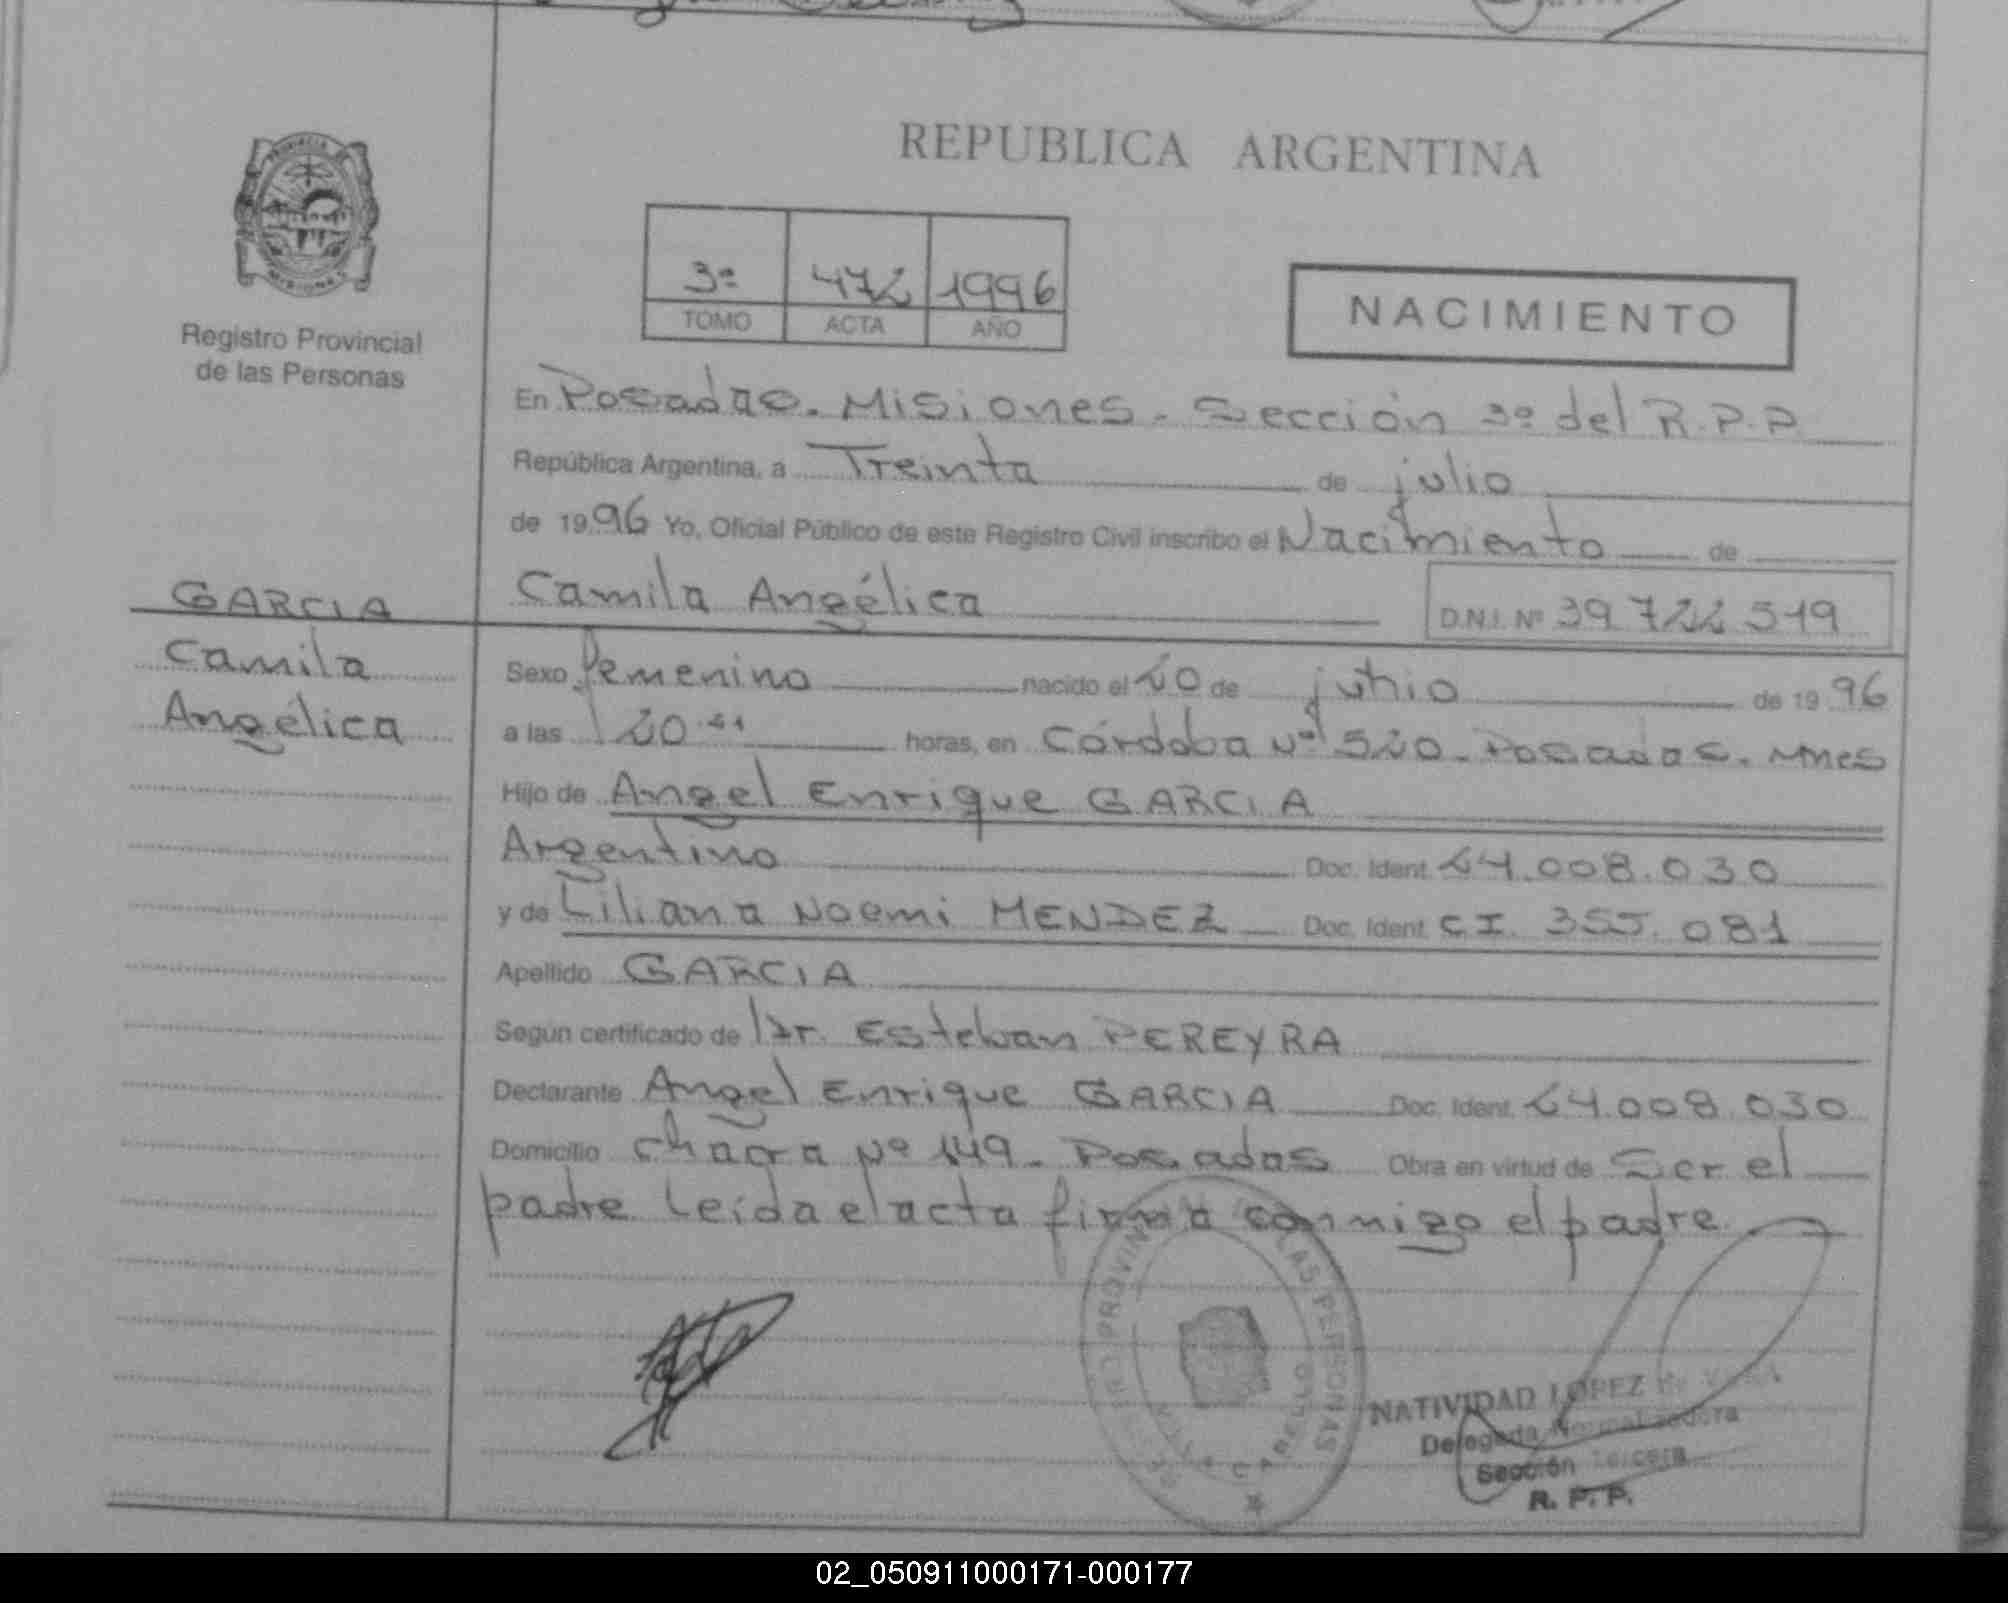 REPUBLICA ARGENTINA
PROVINCIA DE
MISIONES
Registro Provincial
de las Personas
3º 472 1996
TOMO ACTA AÑO
NACIMIENTO
En Posadas. Misiones. Sección 3º del R.P.P.
República Argentina, a Treinta de julio
de 1996 Yo, Oficial Público de este Registro Civil inscribo el Nacimiento de
GARCIA
Camila
Angélica
Camila Angélica D.N.I. Nº 39.722.519
Sexo femenino nacido el 20 de de 1996
a las 20 horas, en Córdoba Nº 520. Posadas. Mnes
Hijo de Angel Enrique GARCIA
Argentino Doc. Ident. 24.008.030
y de Liliana Noemi MENDEZ Doc. Ident. CI. 355.081
Apellido GARCIA
Según certificado de Dr. Esteban PEREYRA
Declarante Angel Enrique GARCIA Doc. Ident. 24.008.030
Domicilio Chacra Nº 149. Posadas Obra en virtud de Ser el
padre Leída el acta firma conmigo el padre.
PROVINCIAL LAS PERSONAS
VILLA CABELLO
NATIVIDAD LOPEZ de
Delegada Normalizadora
Sección Tercera
R. P. P.
02_050911000171-000177